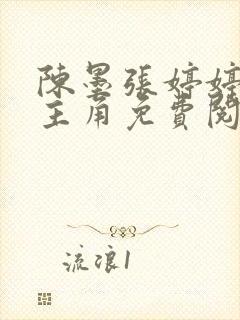 陳墨張婷婷
主角免費閱
流浪1